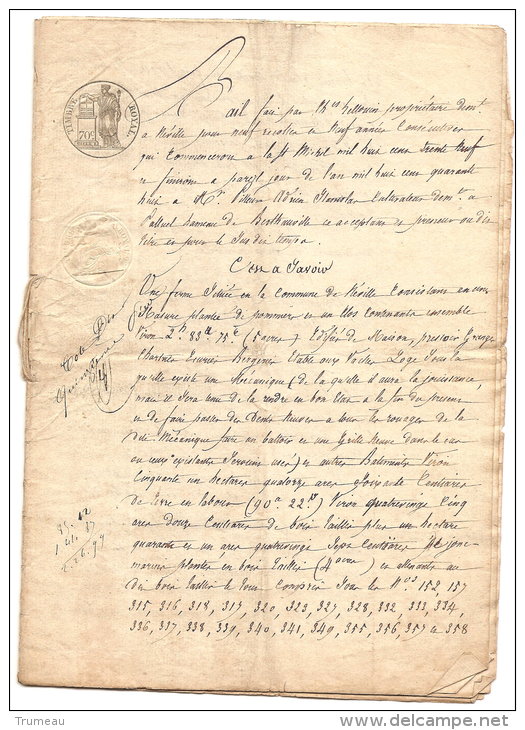 TIMBRE ROYAL
70c
Bail fait par Chles hellouin propriétaire demt
a Néville pour neuf recoltes en Neuf années Consecutives
qui commenceron a la St Michel mil huit cent trente neuf
e finiron a pareil jour de l'an mil huit cent quarante
huit a Mr Villers Adrien Stanislas Cultivateur demt a
Paluel hameau de Berthauville ce acceptant et preneur ou dit
titre et pour le Tems dit Temps a
C'est a Savoir
Une ferme Située en la commune de Néville Consistant en une
Masure plantée de pommiers et un Clos contenants ensemble
Viron 2h 83a 75c (5 acres) Edifiée de Maison, pressoir Grange
Chartrie Ecuries Bergerie Etable aux Vaches Loge Sous la
quelle existe une Mécanique (de la quelle il aura la jouissance,
mais il Sera tenu de la rendre en bon Etat a la fin du present
et de faire passer des Dents Neuves a tous les rouages de la
dite Mécanique faire un battoir et une Grille Neuve dans le cas
ou ceux existants Seroient usés) et autres Batiments Viron
Cinquante un hectares quatorze ares Soixante Centiares
de Terre en labour (90a 22p) Viron quatrevingt Cinq
ares douze Centiares de bois taillis plus un hectare
quarante et un ares quatrevingt Sept Centiares de jonc
marins plantés en bois taillis (4 acres) et attenants au
dit bois taillis le tout Compris Sous les Nos 152, 157
315, 316, 318, 317, 320, 323, 327, 328, 332, 333, 334,
336, 337, 338, 339, 340, 341, 349, 355, 356, 357 et 358
Trumeau
delcampe.net